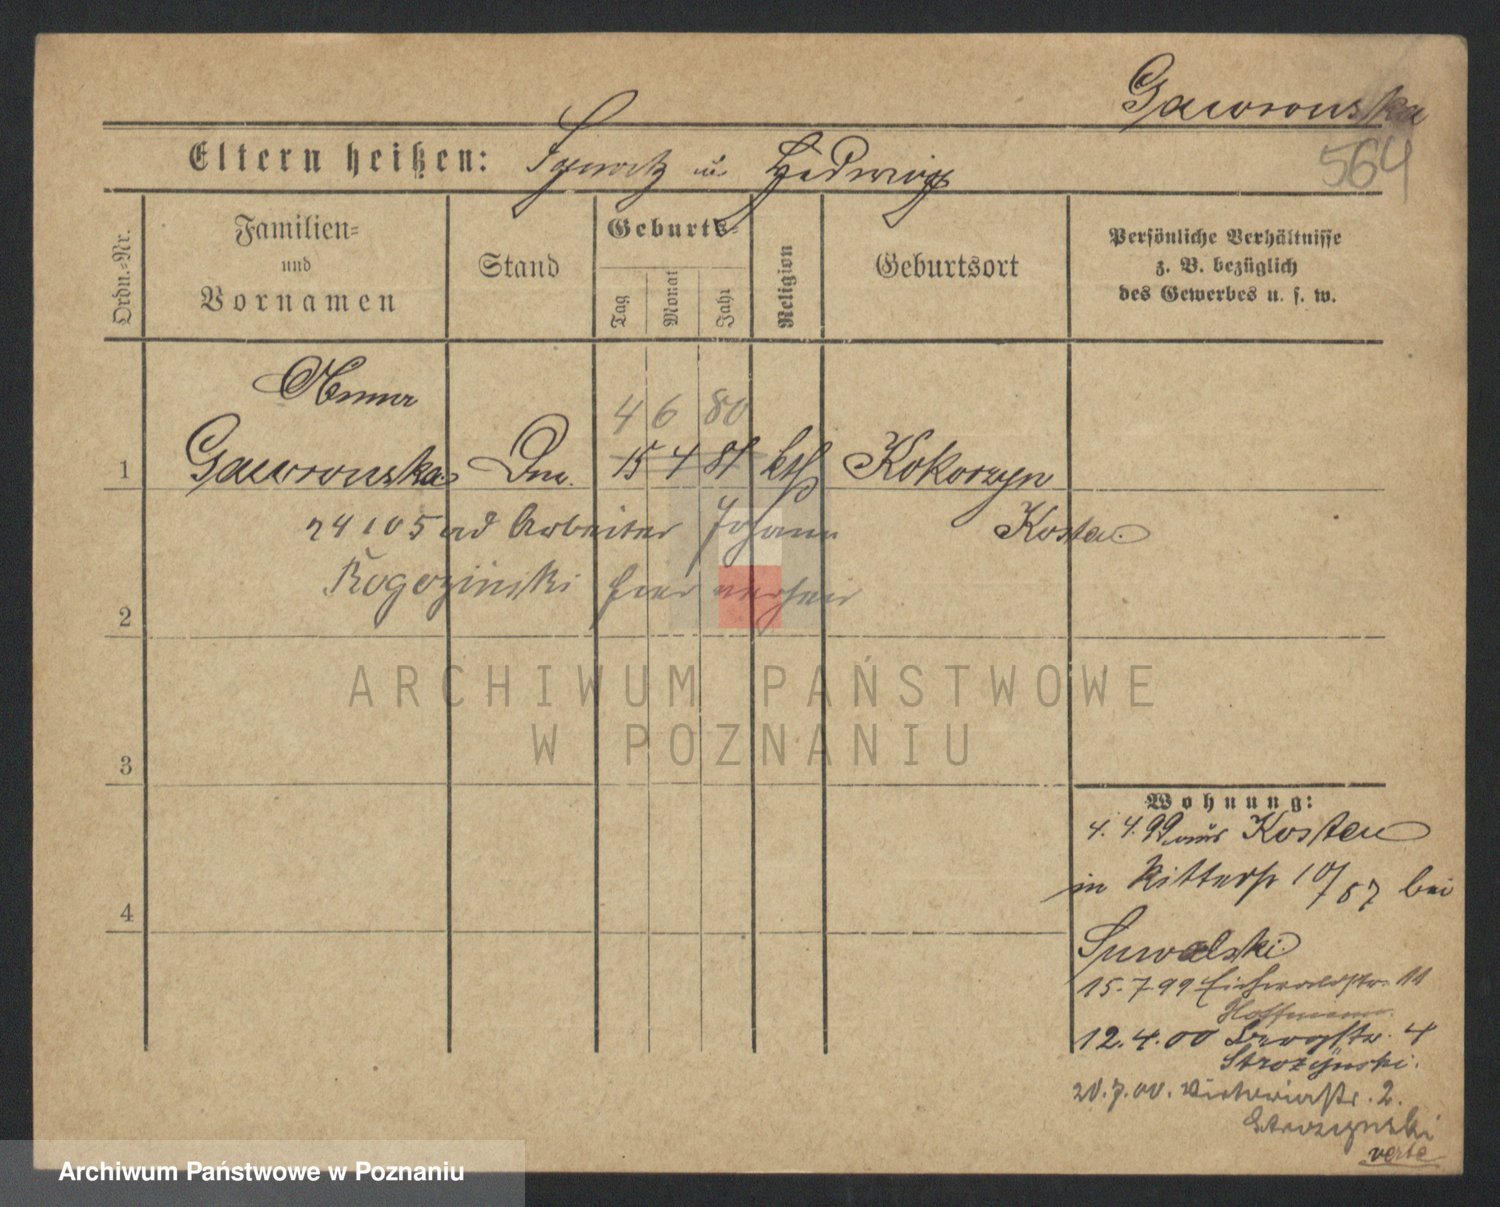 Gawronska
564
Eltern heißen: Ignatz u. Hedwig
Ordn.=Nr.
Familien=
und
Vornamen
Stand
Geburts=
Tag
Monat
Jahr
Religion
Geburtsort
Persönliche Verhältnisse
z. B. bezüglich
des Gewerbes u. s. w.
Anna
4 6 80
1 Gawronska 15 4 81 kth Kokorzyn
24 10 5 ad Arbeiter Johann Kosten
Rogozinski hier
2
3
4
ARCHIWUM PAŃSTWOWE
W POZNANIU
Wohnung:
4. 4. 99 aus Kosten
in Ritterstr 10/ bei
Suwalski
15. 7 99 Eichwaldstr. 11
Hoffmann
12. 4. 00 4
Strozynski.
20. 7. 00. Victoriastr. 2.
Strozynski
verte
Archiwum Państwowe w Poznaniu